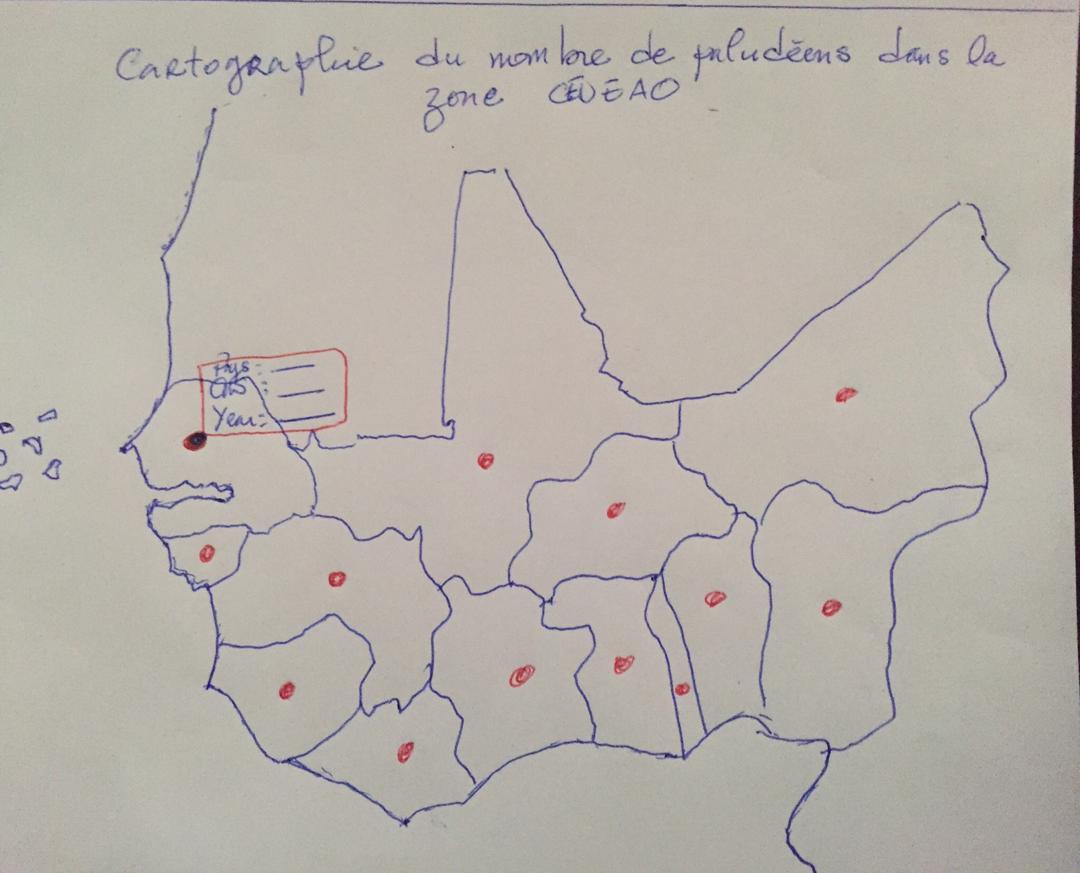 Cartographie du nombre de paludéens dans la
zone CEDEAO
Pays :
Cas :
Year :